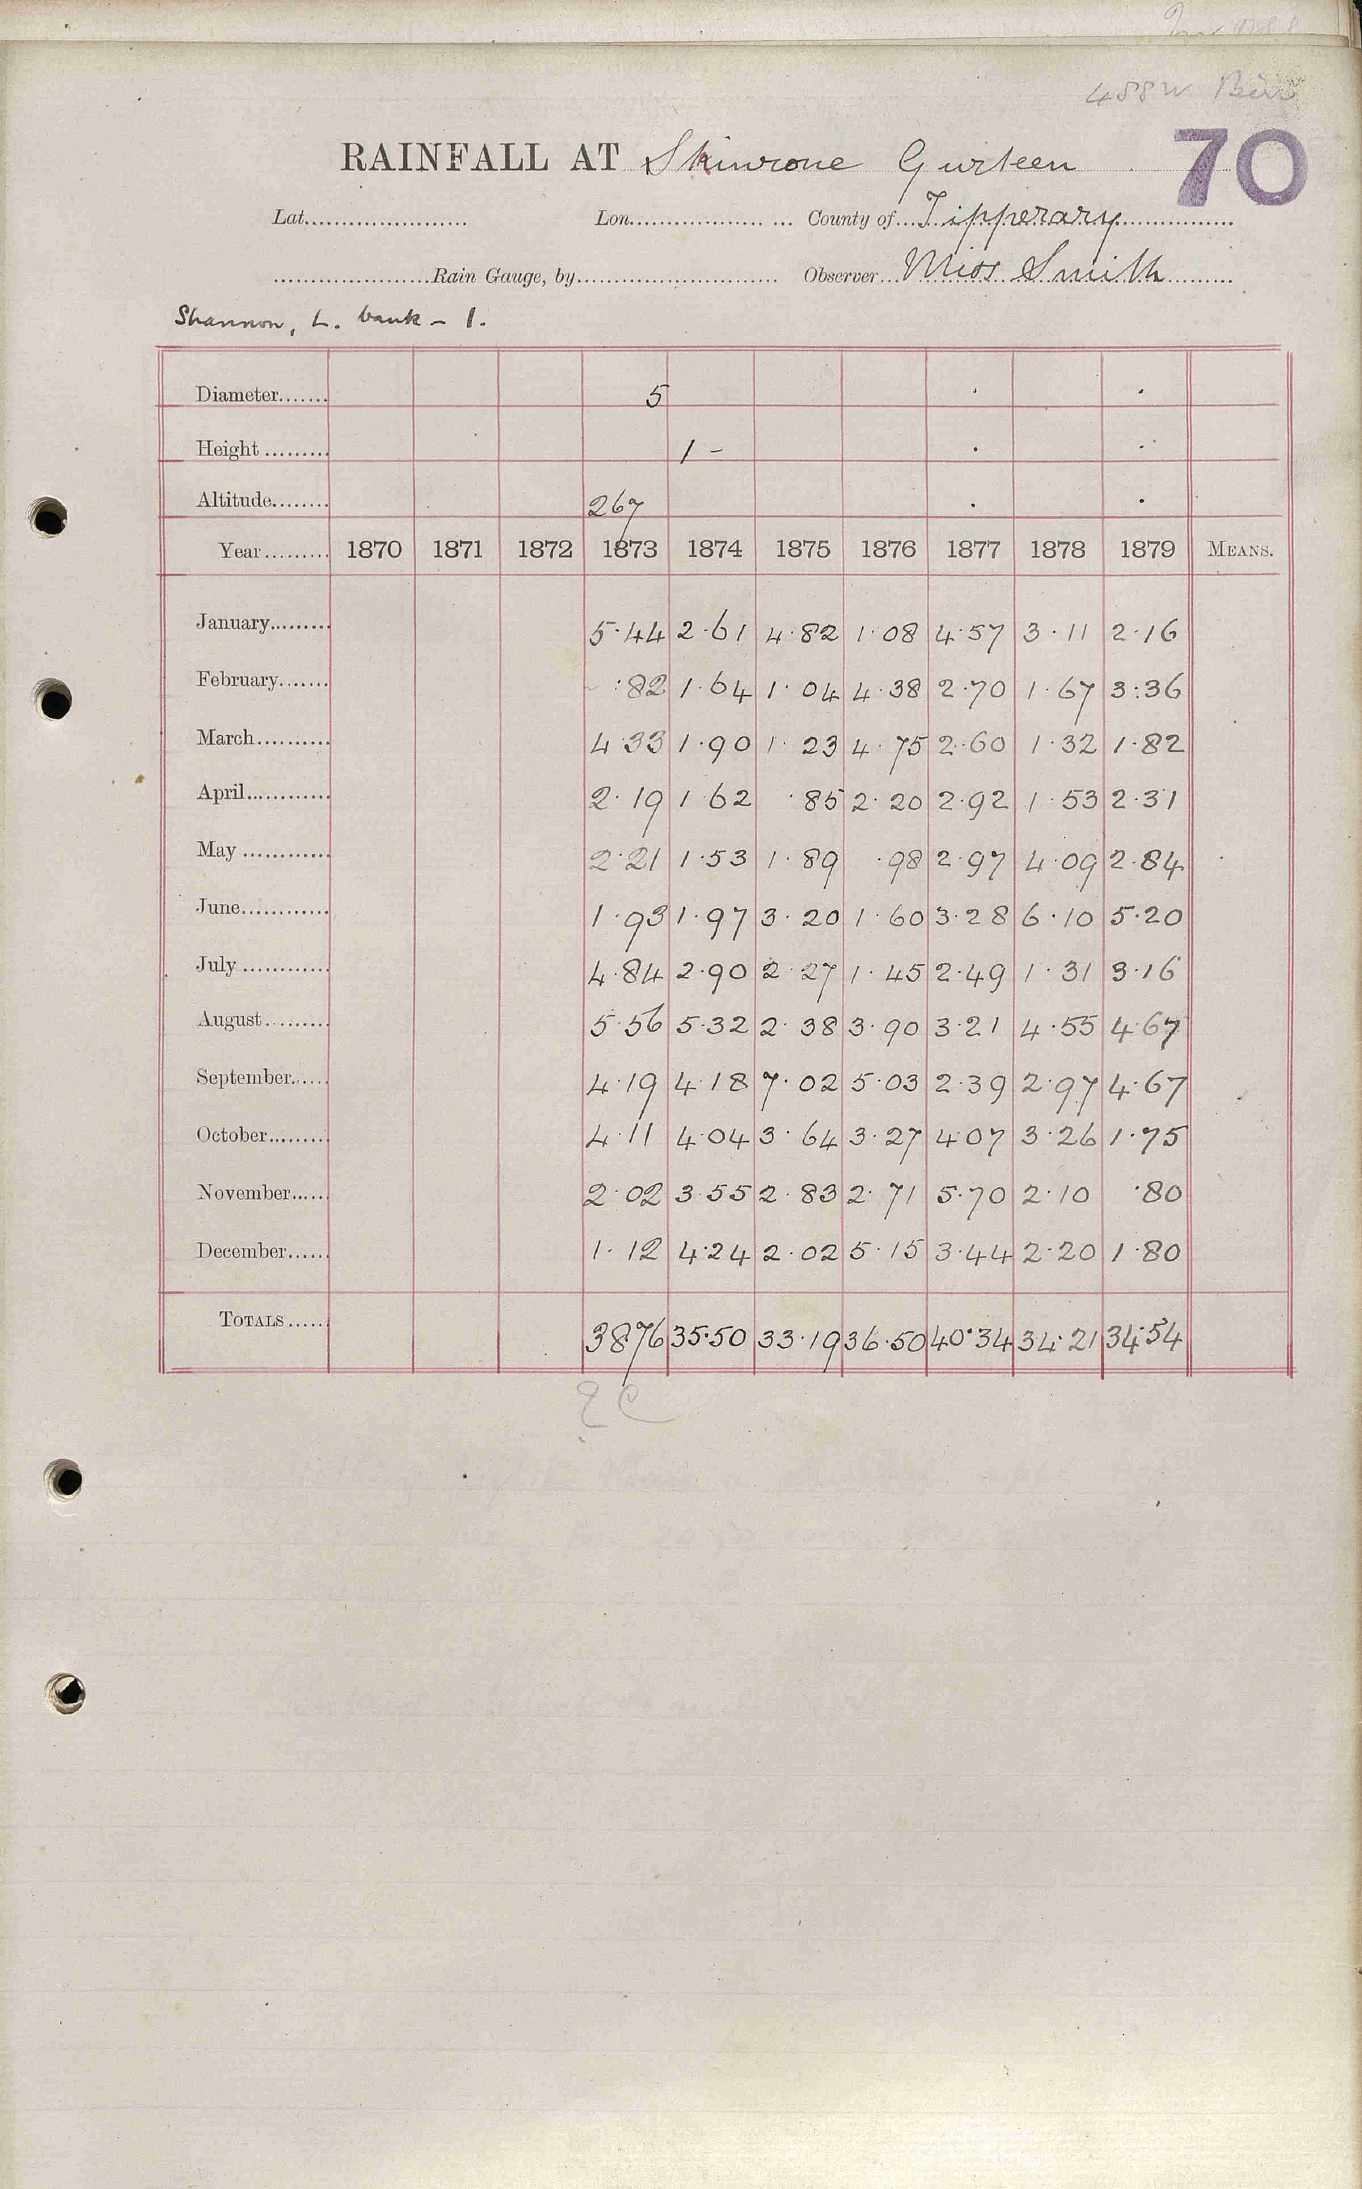 488 W Birr
70
RAINFALL AT Shinrone Gurteen
Lat. Lon. County of Tipperary
Rain Gauge, by Observer Miss Smith
Shannon, L. bank - 1.
Diameter 5
Height 1 -
Altitude 267
Year 1870 1871 1872 1873 1874 1875 1876 1877 1878 1879 MEANS.
January 5.44 2.61 4.82 1.08 4.57 3.11 2.16
February .82 1.64 1.04 4.38 2.70 1.67 3.36
March 4.33 1.90 1.23 4.75 2.60 1.32 1.82
April 2.19 1.62 .85 2.20 2.92 1.53 2.31
May 2.21 1.53 1.89 .98 2.97 4.09 2.84
June 1.93 1.97 3.20 1.60 3.28 6.10 5.20
July 4.84 2.90 2.27 1.45 2.49 1.31 3.16
August 5.56 5.32 2.38 3.90 3.21 4.55 4.67
September 4.19 4.18 7.02 5.03 2.39 2.97 4.67
October 4.11 4.04 3.64 3.27 4.07 3.26 1.75
November 2.02 3.55 2.83 2.71 5.70 2.10 .80
December 1.12 4.24 2.02 5.15 3.44 2.20 1.80
TOTALS 38.76 35.50 33.19 36.50 40.34 34.21 34.54